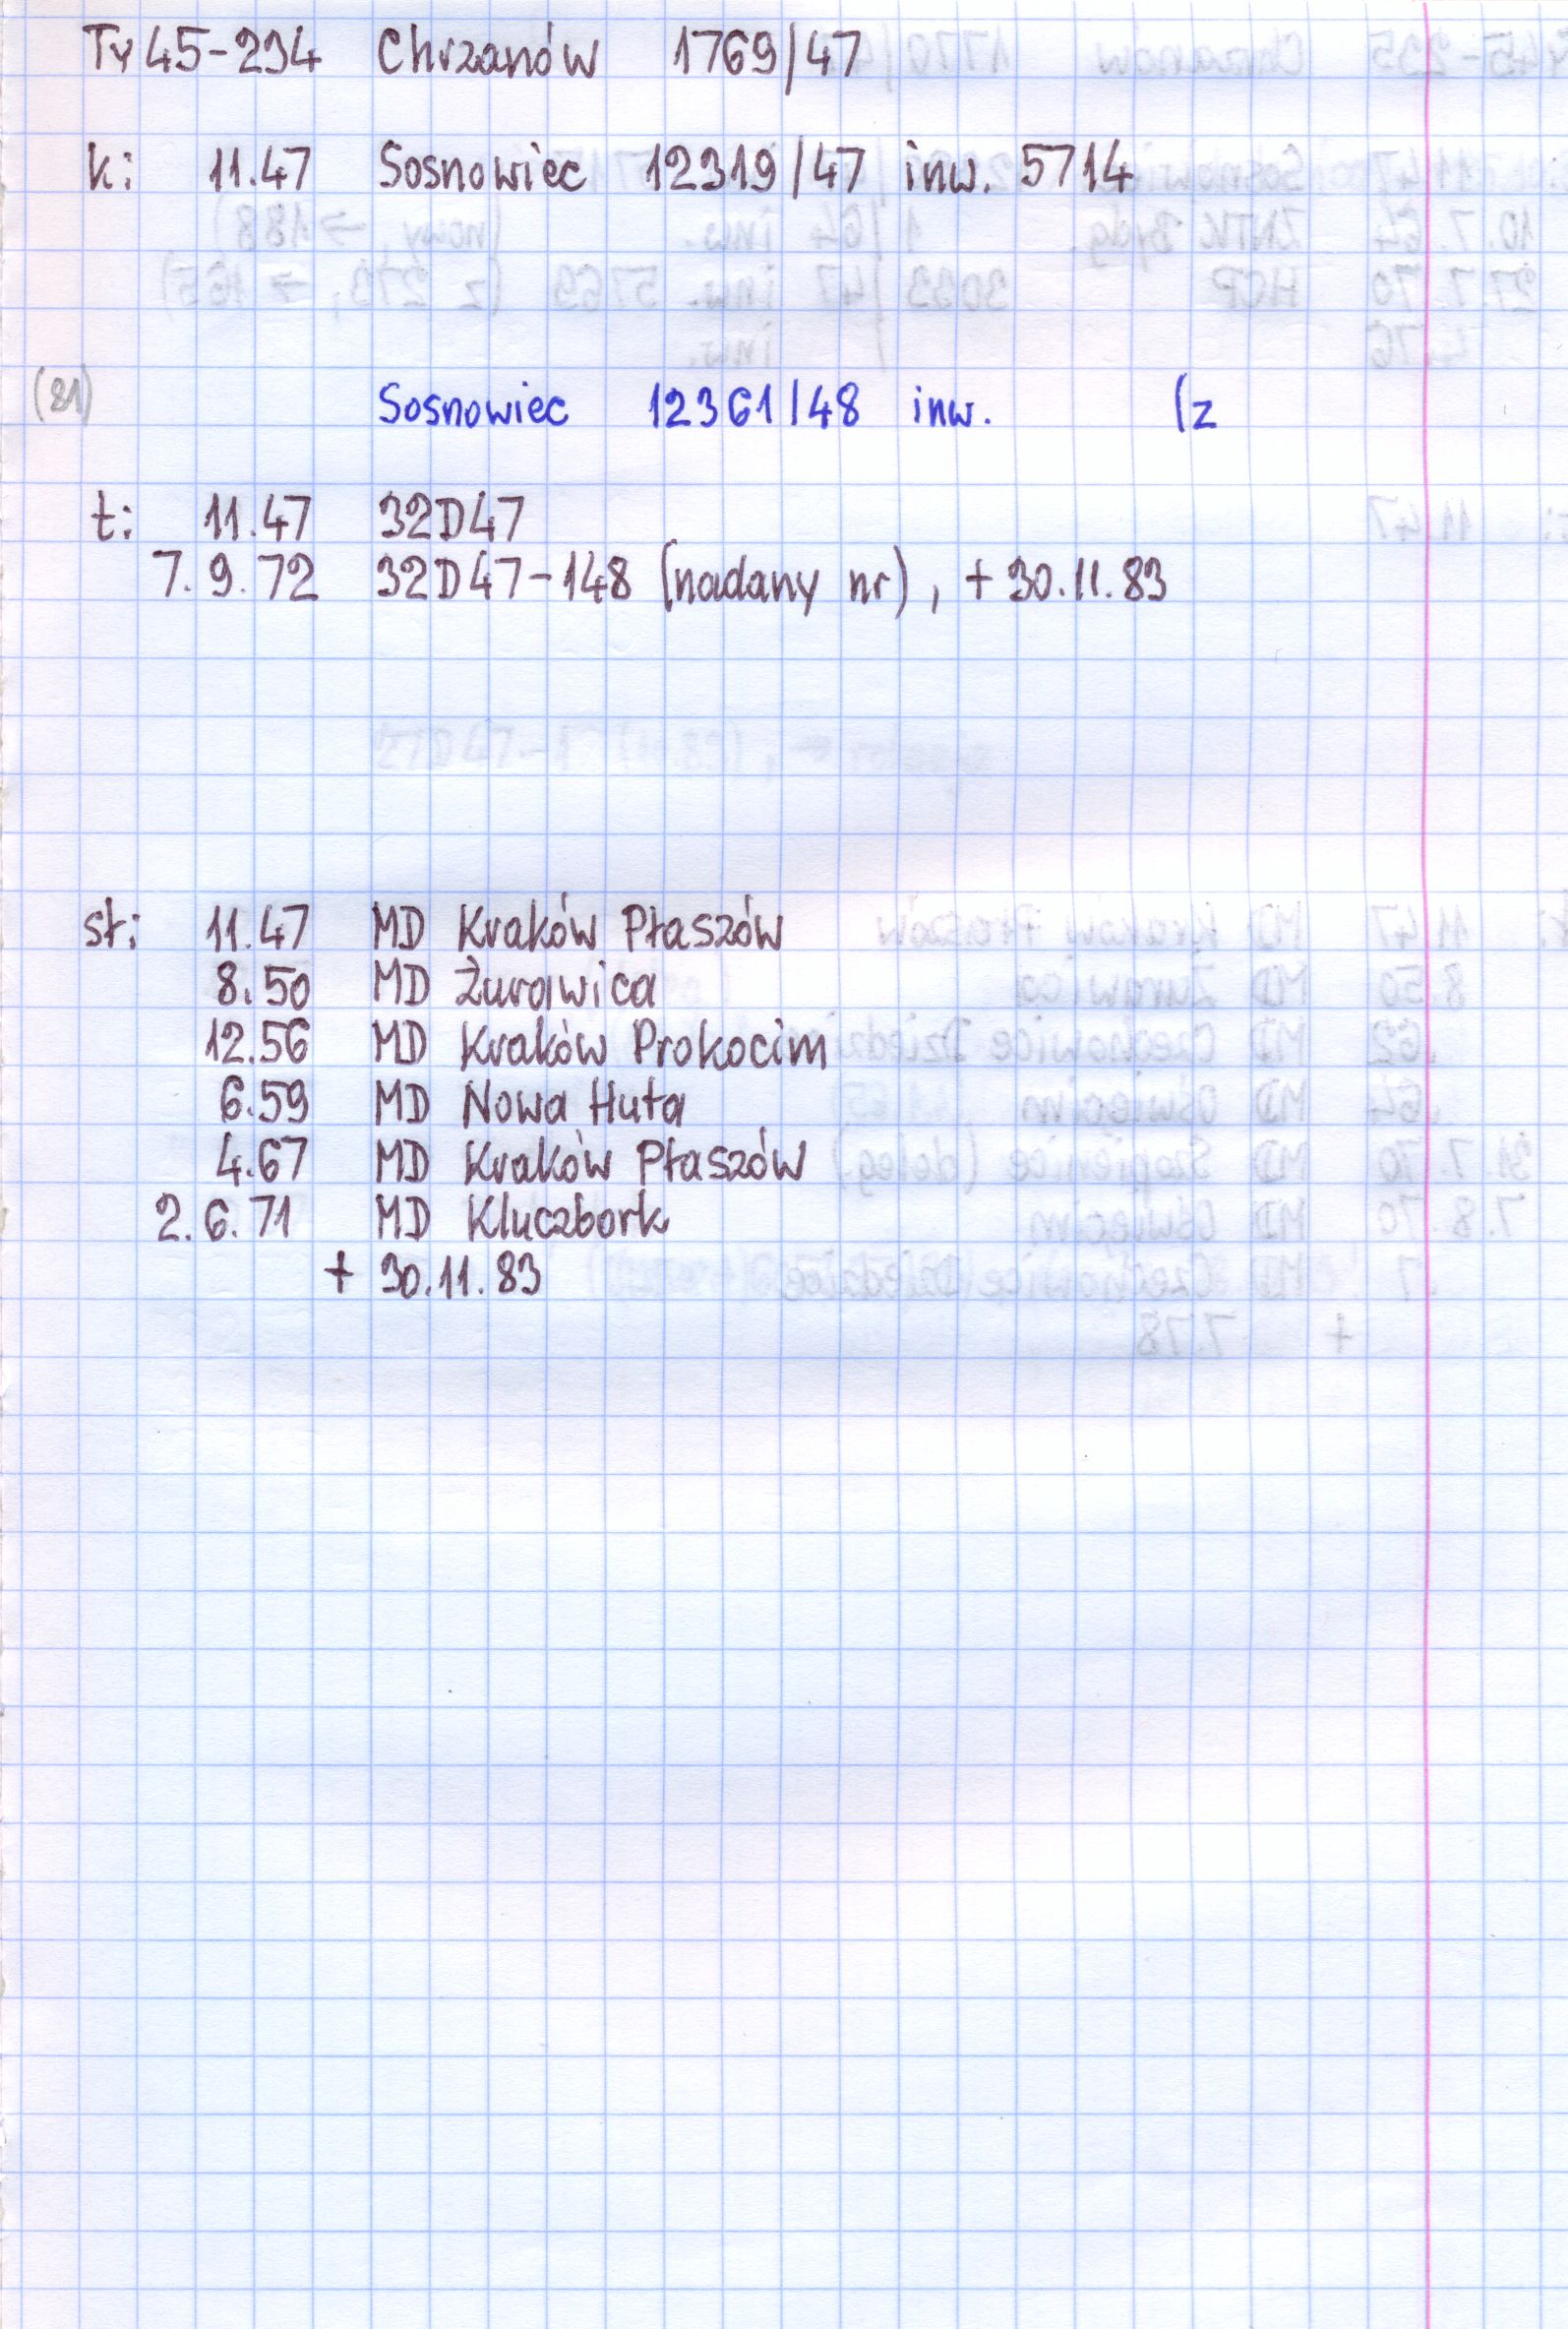 Ty45-234 Chrzanów 1769/47
k: 11.47 Sosnowiec 12319/47 inw. 5714
(81) Sosnowiec 12361/48 inw. (z
t: 11.47 32D47
7.9.72 32D47-148 (nadany nr), + 30.11.83
st: 11.47 MD Kraków Płaszów
8.50 MD Żurawica
12.56 MD Kraków Prokocim
6.59 MD Nowa Huta
4.67 MD Kraków Płaszów
2.6.71 MD Kluczbork
+ 30.11.83